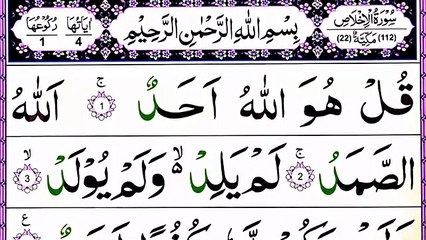 سُوْرَةُ الْاِخْلَاصِ
(112) مَكِّيَّةٌ (22)
بِسْمِ اللّٰهِ الرَّحْمٰنِ الرَّحِيْمِ
اٰيَاتُهَا 4
رُكُوْعُهَا 1
قُلْ هُوَ اللّٰهُ اَحَدٌ ۚ ﴿1﴾ اَللّٰهُ
الصَّمَدُ ۚ ﴿2﴾ لَمْ يَلِدْ ۙ وَلَمْ يُوْلَدْ ۙ ﴿3﴾